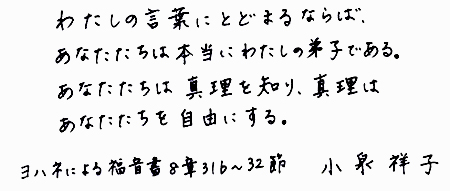 わたしの言葉にとどまるならば、
あなたたちは本当にわたしの弟子である。
あなたたちは真理を知り、真理は
あなたたちを自由にする。
ヨハネによる福音書8章31b～32節　小泉祥子